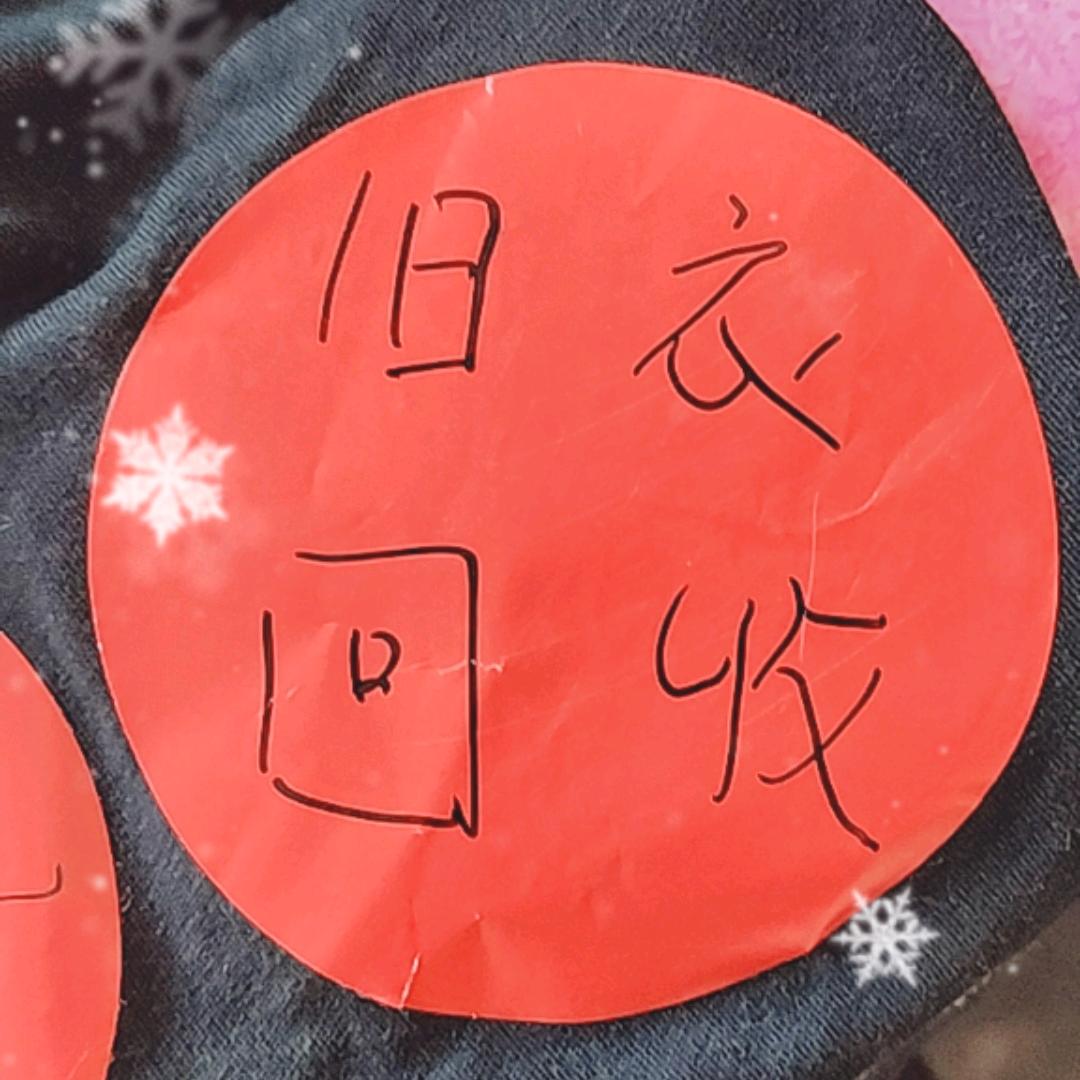 旧衣
回收